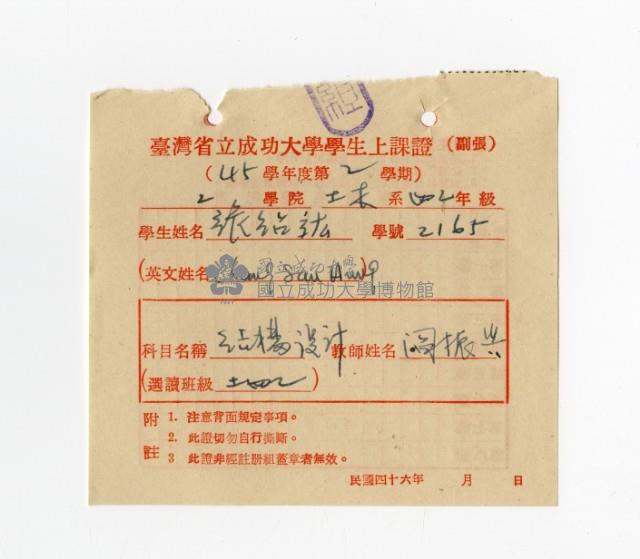 臺灣省立成功大學學生上課證(副張)
(45學年度第2學期)
2學院土木系四乙年級
學生姓名張紹鋐 學號2165
(英文姓名
國立成功大學
國立成功大學博物館
科目名稱结構设计 教師姓名阎振兴
(選讀班級土四乙)
附註
1. 注意背面規定事項。
2. 此證切勿自行撕斷。
3 此證非經註册組蓋章者無效。
民國四十六年 月 日